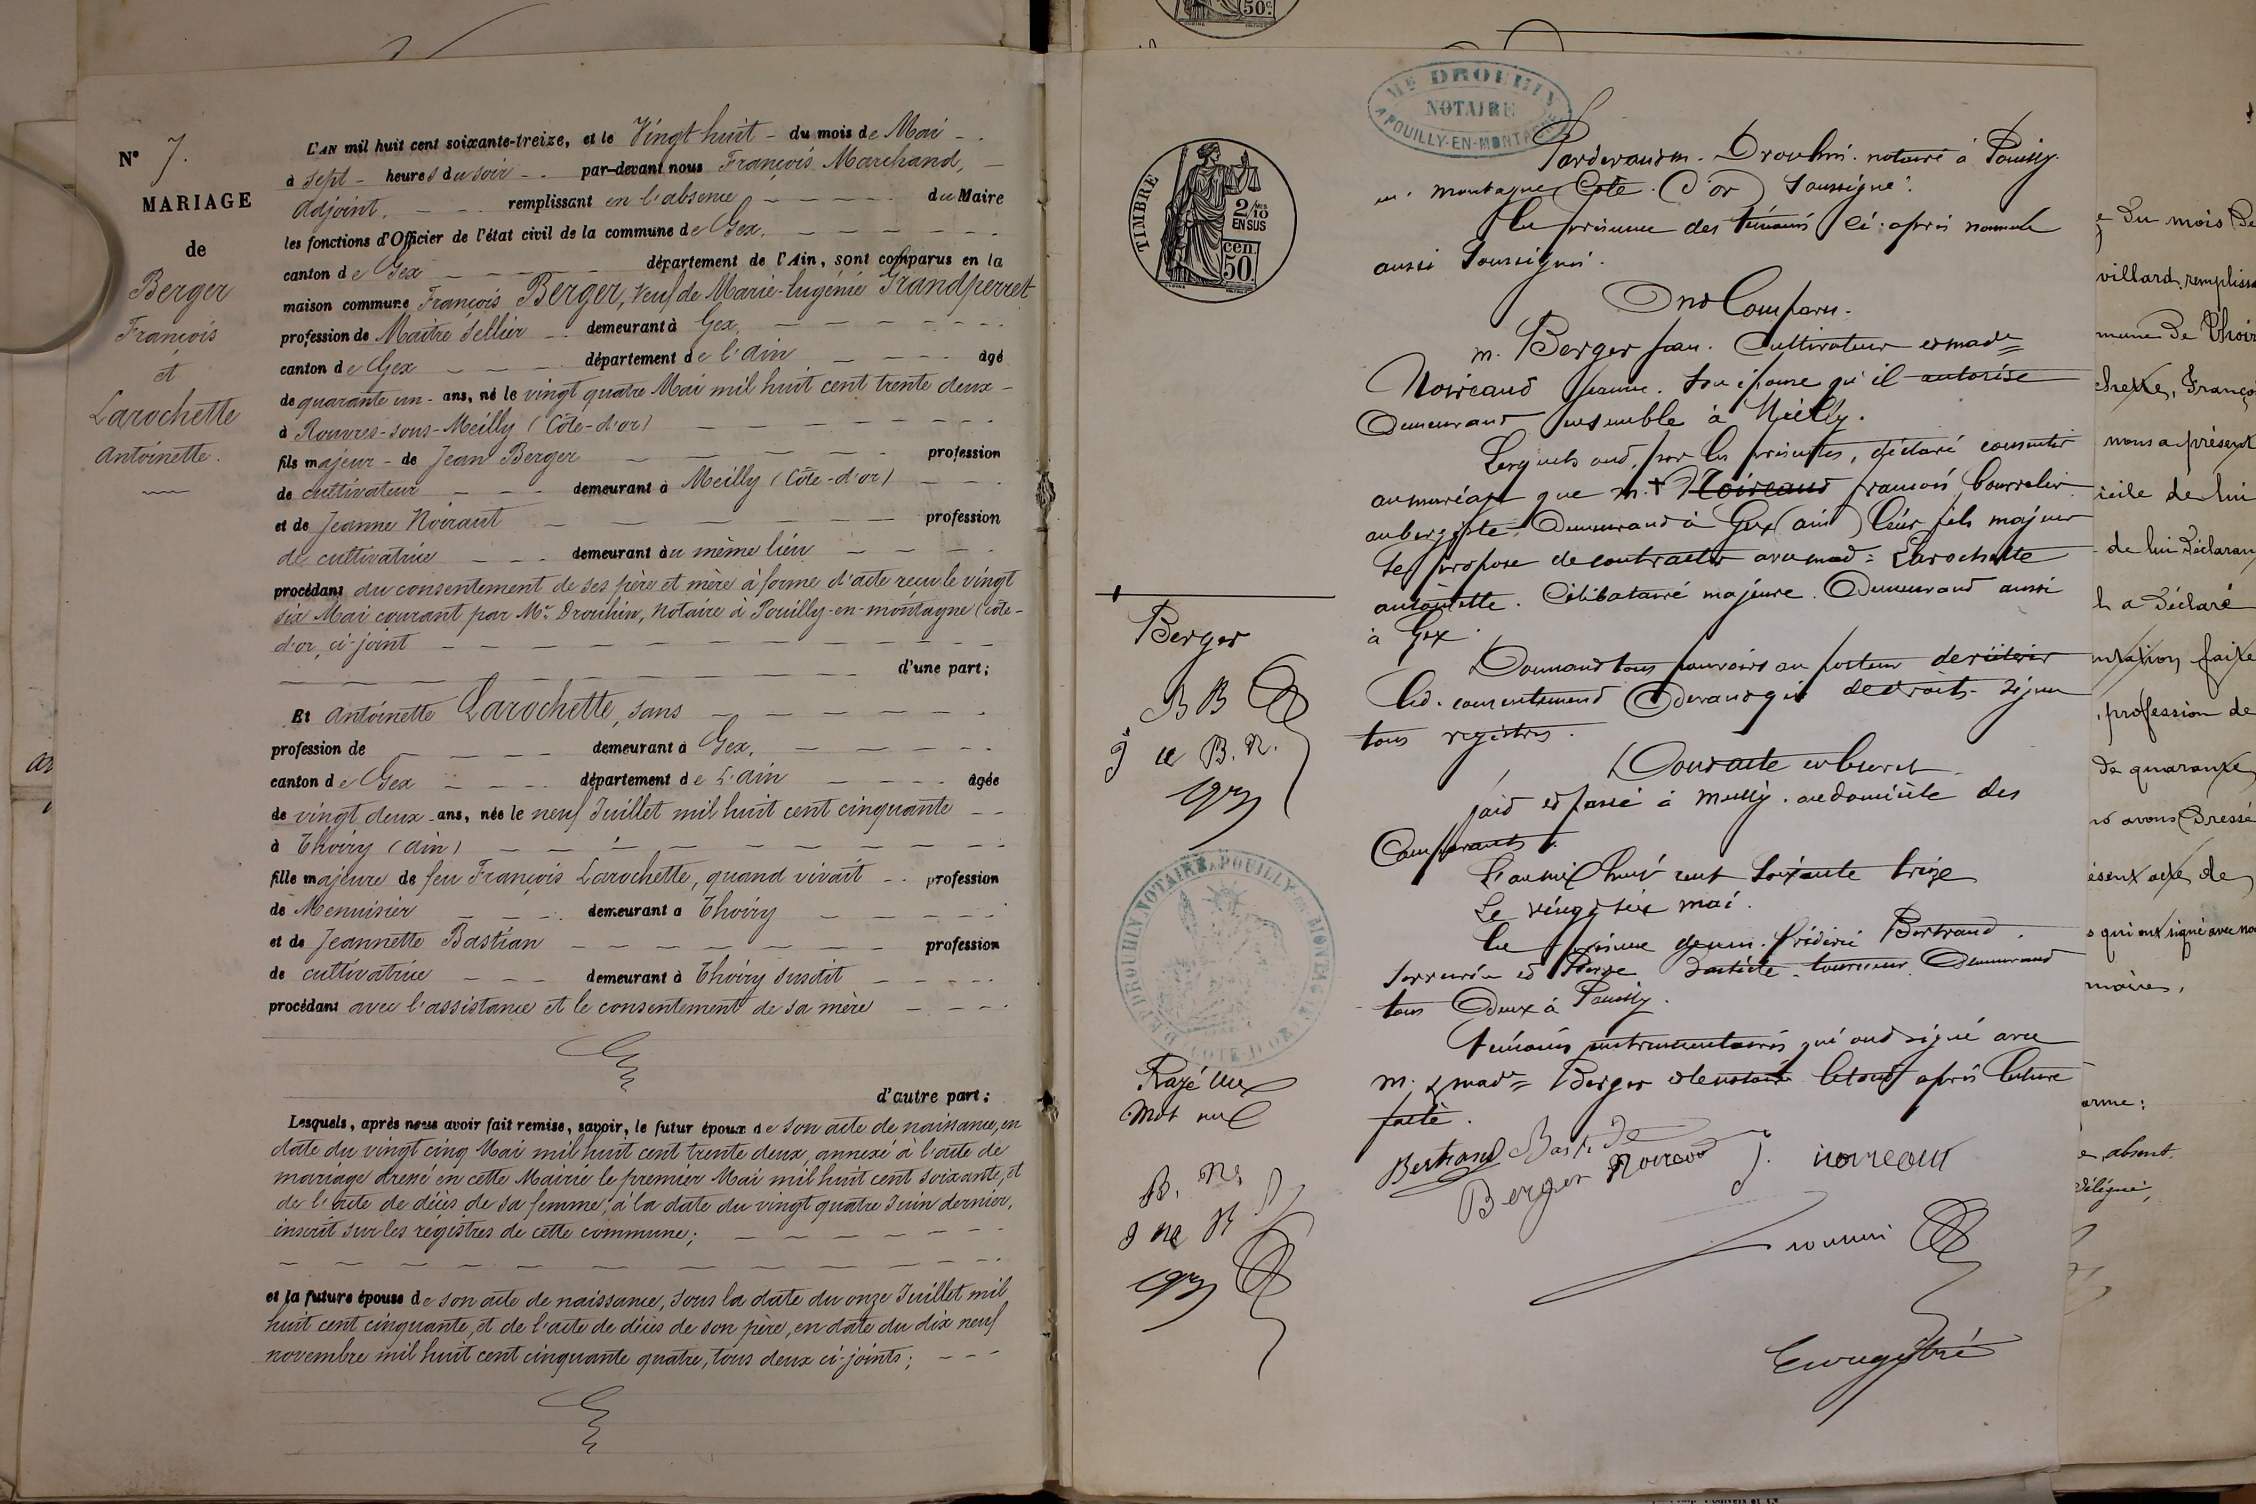 N° 7.
MARIAGE
de
Berger
François
et
Larochette
Antoinette.
L'AN mil huit cent soixante-treize, et le Vingt huit - du mois de Mai - .
à sept - heures du soir - . par-devant nous François Marchand, -
adjoint. - remplissant en l'absence - du Maire
les fonctions d'Officier de l'état civil de la commune de Gex.
canton de Gex - département de l'Ain, sont comparus en la
maison commune François Berger, veuf de Marie-Eugénie Grandperret
profession de Maître Sellier - demeurant à Gex.
canton de Gex - département de l'Ain - âgé
de quarante un - ans, né le vingt quatre Mai mil huit cent trente deux -
à Rouvres-sous-Meilly (Côte-d'or)
fils majeur - de Jean Berger - profession
de cultivateur - demeurant à Meilly (Côte-d'or)
et de Jeanne Noirant - profession
de cultivatrice - demeurant au même lieu
procédant du consentement de ses père et mère à forme d'acte reçu le vingt
six Mai courant par Me Drouhin, Notaire à Pouilly-en-montagne (Côte-
d'or, ci-joint
d'une part;
Et Antoinette Larochette, sans
profession de - demeurant à Gex.
canton de Gex - département de L'ain - âgée
de vingt deux - ans, née le neuf Juillet mil huit cent cinquante
à Thoiry (ain)
fille majeure de feu François Larochette, quand vivait - profession
de Menuisier - demeurant à Thoiry
et de Jeannette Bastian - profession
de cultivatrice - demeurant à Thoiry susdit
procédant avec l'assistance et le consentement de sa mère
d'autre part;
Lesquels, après nous avoir fait remise, savoir, le futur époux de son acte de naissance, en
date du vingt cinq Mai mil huit cent trente deux, annexé à l'acte de
mariage dressé en cette Mairie le premier Mai mil huit cent soixante, et
de l'acte de décès de sa femme, à la date du vingt quatre Juin dernier,
inscrit sur les régistres de cette commune;
et la future épouse de son acte de naissance, sous la date du onze Juillet mil
huit cent cinquante, et de l'acte de décès de son père, en date du dix neuf
novembre mil huit cent cinquante quatre, tous deux ci-joints;
Me DROUHIN
NOTAIRE
A POUILLY-EN-MONTAGNE
TIMBRE
2/10 EN SUS
cen 50
Pardevant m. Drouhin. notaire à Pouilly.
en montagne (Côte d'or) Soussigné.
En présence des témoins ci-après nommés
aussi Soussignés.
Ont Comparu.
m. Berger Jean. Cultivateur et made
Noireaud Jeanne. Son épouse qu'il autorise
Demeurant ensemble à Meilly.
Lesquels ont, par les présentes, déclaré consentir
au mariage que m. + Noireaud françois, bourrelier
aubergiste. Demeurant à Gex (ain) leur fils majeur
Se propose de contracter avec mad. Larochette
antoinette. Célibataire majeure. Demeurant aussi
à Gex.
Donnant tous pouvoirs au porteur de réitérer
led. consentement Devant qui de droit. signer
tous registres.
Dont acte en brevet
fait et passé à Meilly. au domicile des
Comparants.
L'an mil huit cent Soixante treize
Le vingt six mai.
En présence de mm. frédéric Bertrand.
Serrurier et Pierre Bastide. tourneur. Demeurant
tous Deux à Pouilly.
témoins instrumentaires qui ont signé avec
m. & made Berger et le notaire le tout après lecture
faite.
Bertrand Bastide
Berger Noireaud J. noireaut
Drouhin
Enregistré
Berger
B B
J ne B. N.
Me DROUHIN, NOTAIRE A POUILLY-EN-MONTAGNE
COTE D'OR
Rayé un
Mot nul
B. N.
J ne B
du mois de
villard, remplissa
mune de Thoir
, Franço
nous a présent
icile de lui
de lui déclaran
a déclaré
ntation faite
, profession de
de quarante
avons Dressé
ésent acte de
qui ont signé avec no
maire,
orme:
absent.
délégué,